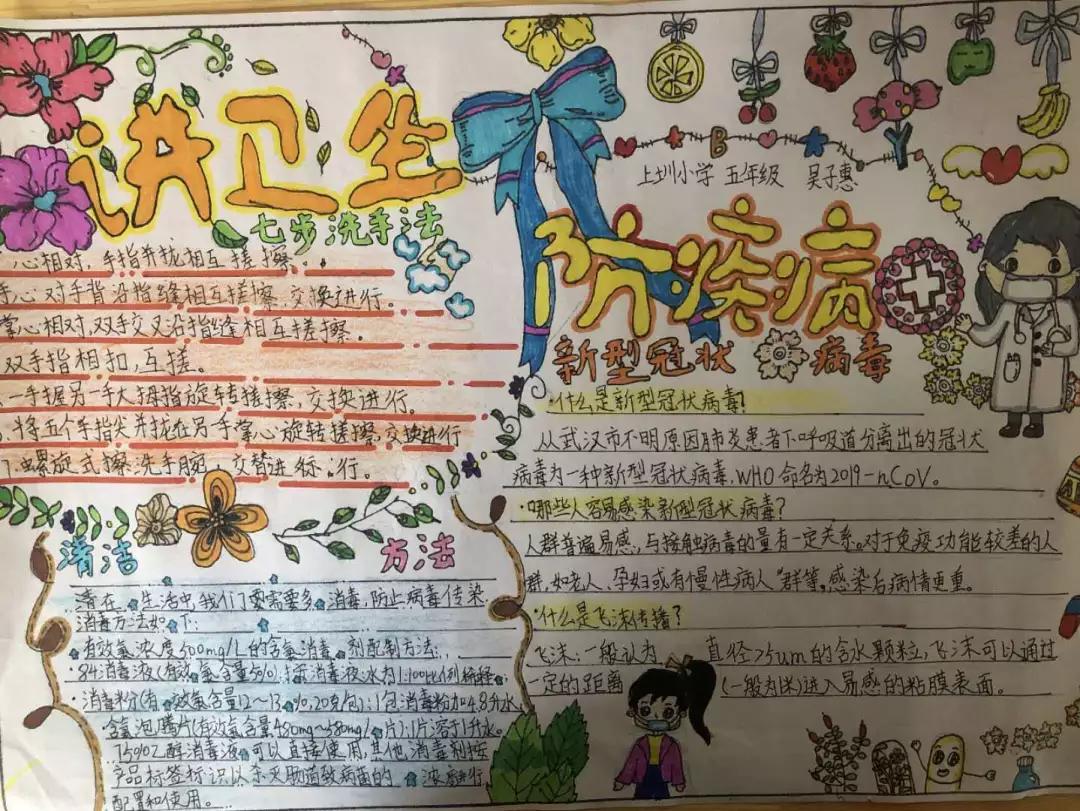 讲卫生
七步洗手法
心相对,手指并拢相互搓擦。
手心对手背沿指缝相互搓擦,交换进行。
掌心相对,双手交叉沿指缝相互搓擦。
双手指相扣,互搓。
一手握另一手大拇指旋转搓擦,交换进行。
将五个手指尖并拢在另手掌心旋转搓擦,交换进行
螺旋式擦洗手腕,交替进行。
清洁 方法
生活中,我们要需要多 消毒,防止病毒传染
消毒方法如下:
有效氯浓度500mg/L的含氯消毒 剂配制方法:
84消毒液(有效氯含量5%):按消毒液水为1:100比例稀释
消毒粉(有 效氯含量12~13 %,20克/包):1包消毒粉加4.8升水
含氯泡腾片(有效氯含量480mg~580mg/片):1片溶于1升水。
75%乙醇消毒液 可以直接使用,其他消毒剂按
产品标签标识以杀灭肠道致病菌的 浓度进行
配置和使用。
上圳小学 五年级 吴子惠
防疾病
新型冠状 病毒
·什么是新型冠状病毒?
从武汉市不明原因肺炎患者下呼吸道分离出的冠状
病毒为一种新型冠状病毒,WHO命名为2019-nCoV。
·哪些人容易感染新型冠状病毒?
人群普遍易感,与接触病毒的量有一定关系。对于免疫功能较差的人
群,如老人、孕妇或有慢性病人 群等,感染后病情更重。
·什么是飞沫传播?
飞沫:一般认为 直径>5um的含水颗粒,飞沫可以通过
一定的距离 (一般为1米)进入易感的粘膜表面。